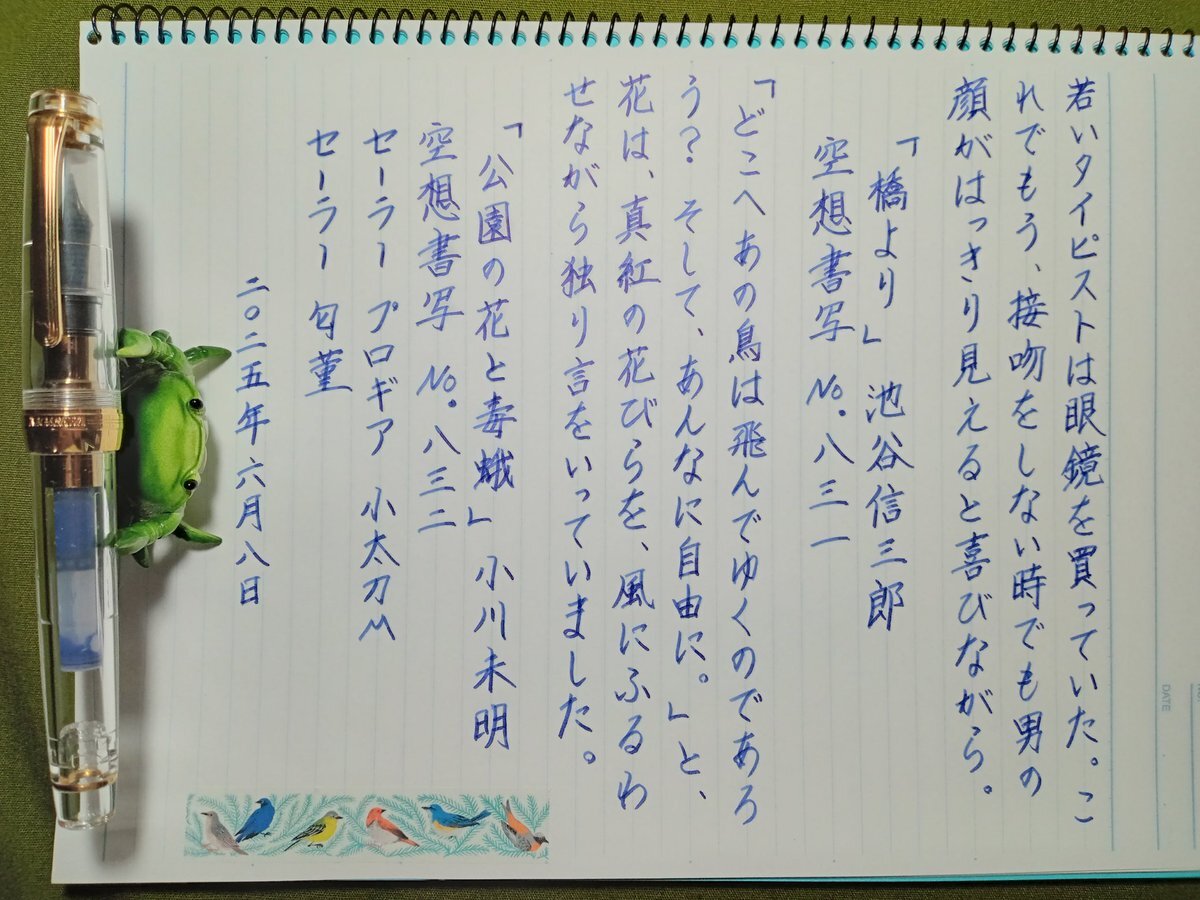 若いタイピストは眼鏡を買っていた。こ
れでもう、接吻をしない時でも男の
顔がはっきり見えると喜びながら。
「橋より」 池谷信三郎
空想書写 No.八三一
「どこへあの鳥は飛んでゆくのであろ
う? そして、あんなに自由に。」と、
花は、真紅の花びらを、風にふるわ
せながら独り言をいっていました。
「公園の花と毒蛾」 小川未明
空想書写 No.八三二
セーラー プロギア 小太刀M
セーラー 匂菫
二〇二五年六月八日
DATE